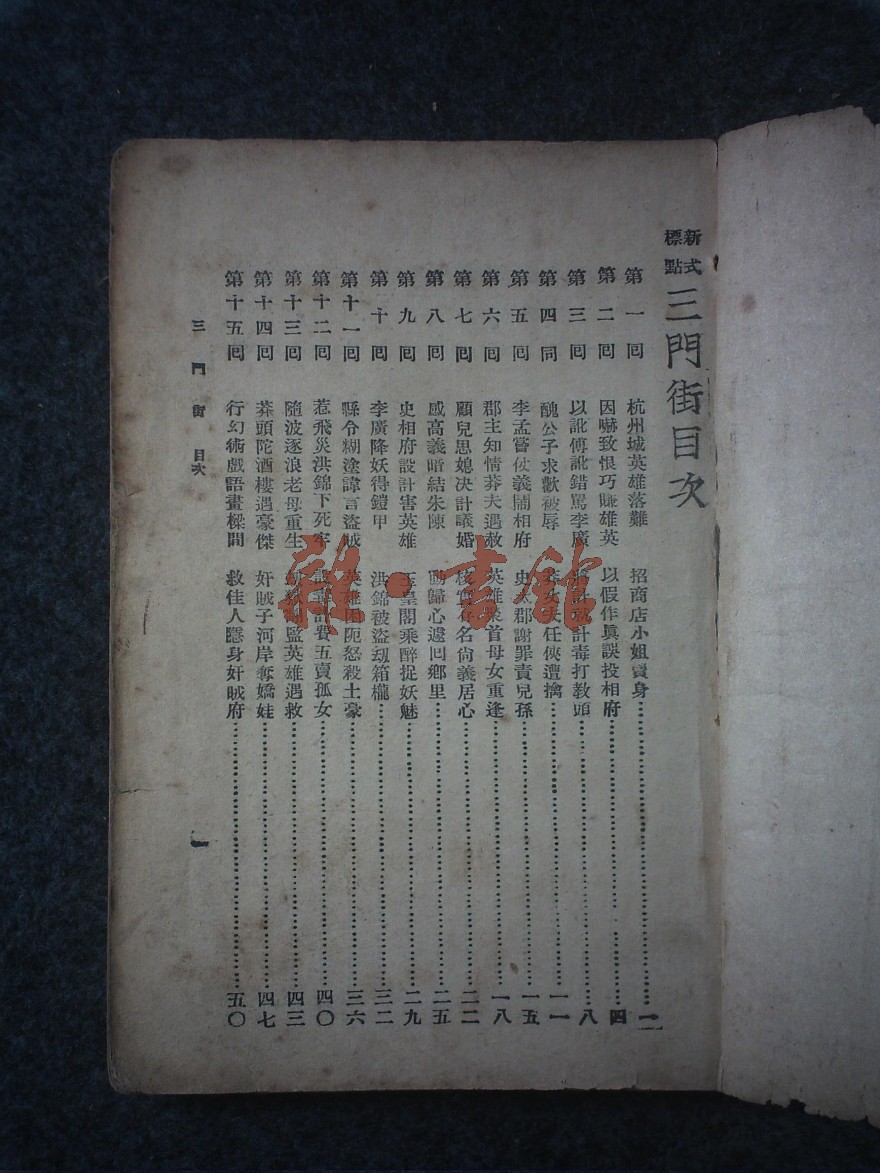 新式標點 三門街目次
第一回 杭州城英雄落難 招商店小姐賣身 一
第二回 因嚇致恨巧賺雄英 以假作眞誤投相府 四
第三回 以訛傅訛錯罵李廣 計就計毒打教頭 八
第四同 醜公子求歡被辱 夫任俠遭擒 一一
第五回 李孟嘗仗義鬧相府 史 郡謝罪責兒孫 一五
第六回 郡主知情莽夫遇救 英雄眾首母女重逢 一八
第七回 顧兒思媳决計議婚 名尙義居心 二二
第八回 感高義暗結朱陳 動歸心遽回鄉里 二五
第九回 史相府設計害英雄 玉皇閣乘醉捉妖魅 二九
第十回 李廣降妖得鎧甲 洪錦被盜刼箱櫳 三二
第十一回 縣令糊塗諱言盜賊 英雄困阨怒殺土豪 三六
第十二回 惹飛災洪錦下死牢 費五賣孤女 四〇
第十三回 隨波逐浪老母重生 監英雄遇救 四三
第十四回 莽頭陀酒樓遇豪傑 奸賊子河岸奪嬌娃 四七
第十五回 行幻術戲語畫樑間 救佳人隱身奸賊府 五〇
三門街 目次 一
雜·書館